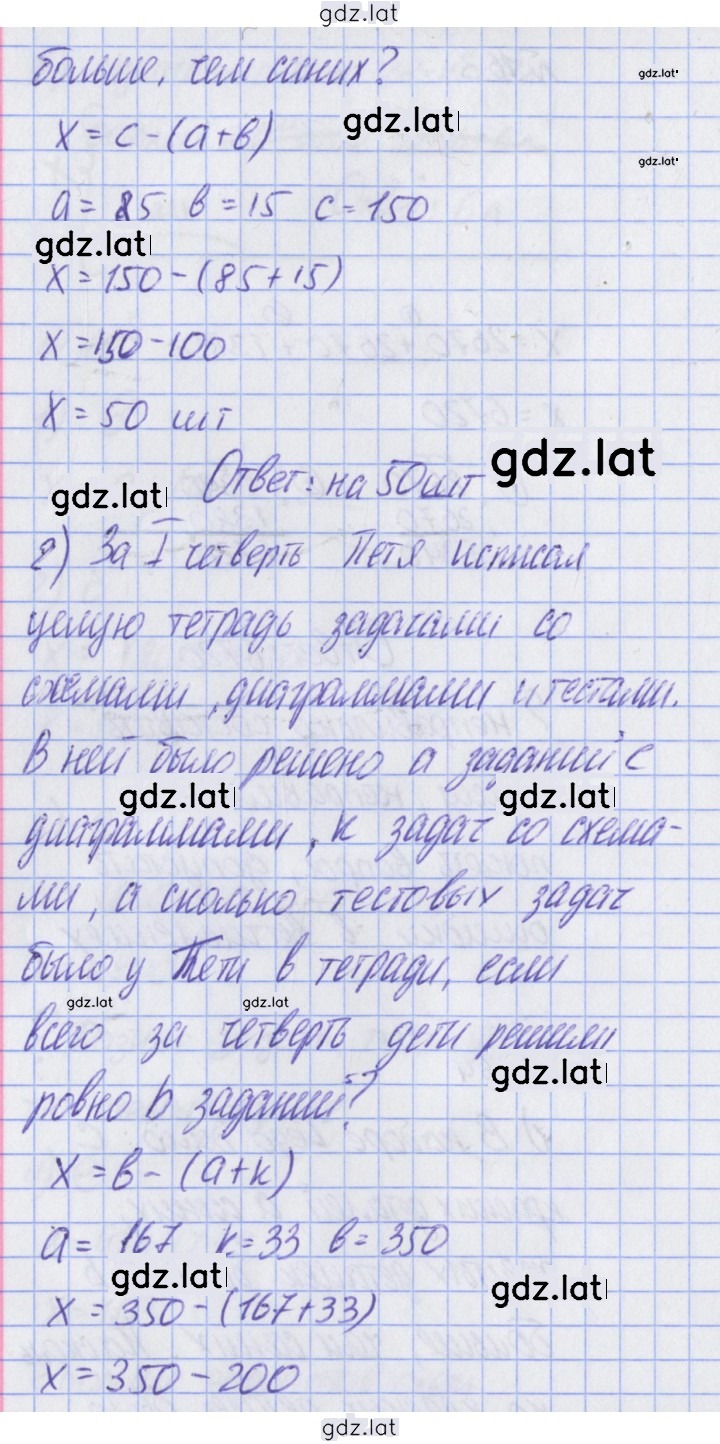 gdz.lat
больше, чем синих?
gdz.lat
x = c - (a + в)
gdz.lat
gdz.lat
a = 85 в = 15 c = 150
gdz.lat
x = 150 - (85 + 15)
x = 150 - 100
x = 50 шт
gdz.lat
Ответ: на 50 шт
gdz.lat
2) За I четверть Петя исписал
целую тетрадь задачами со
схемами, диаграммами и тестами.
В ней было решено a заданий с
gdz.lat gdz.lat
диаграммами, к задач со схема-
ми, а сколько тестовых задач
было у Пети в тетради, если
gdz.lat gdz.lat
всего за четверть дети решили
gdz.lat
ровно b заданий?
x = в - (a + к)
a = 167 к = 33 в = 350
gdz.lat gdz.lat
x = 350 - (167 + 33)
x = 350 - 200
gdz.lat